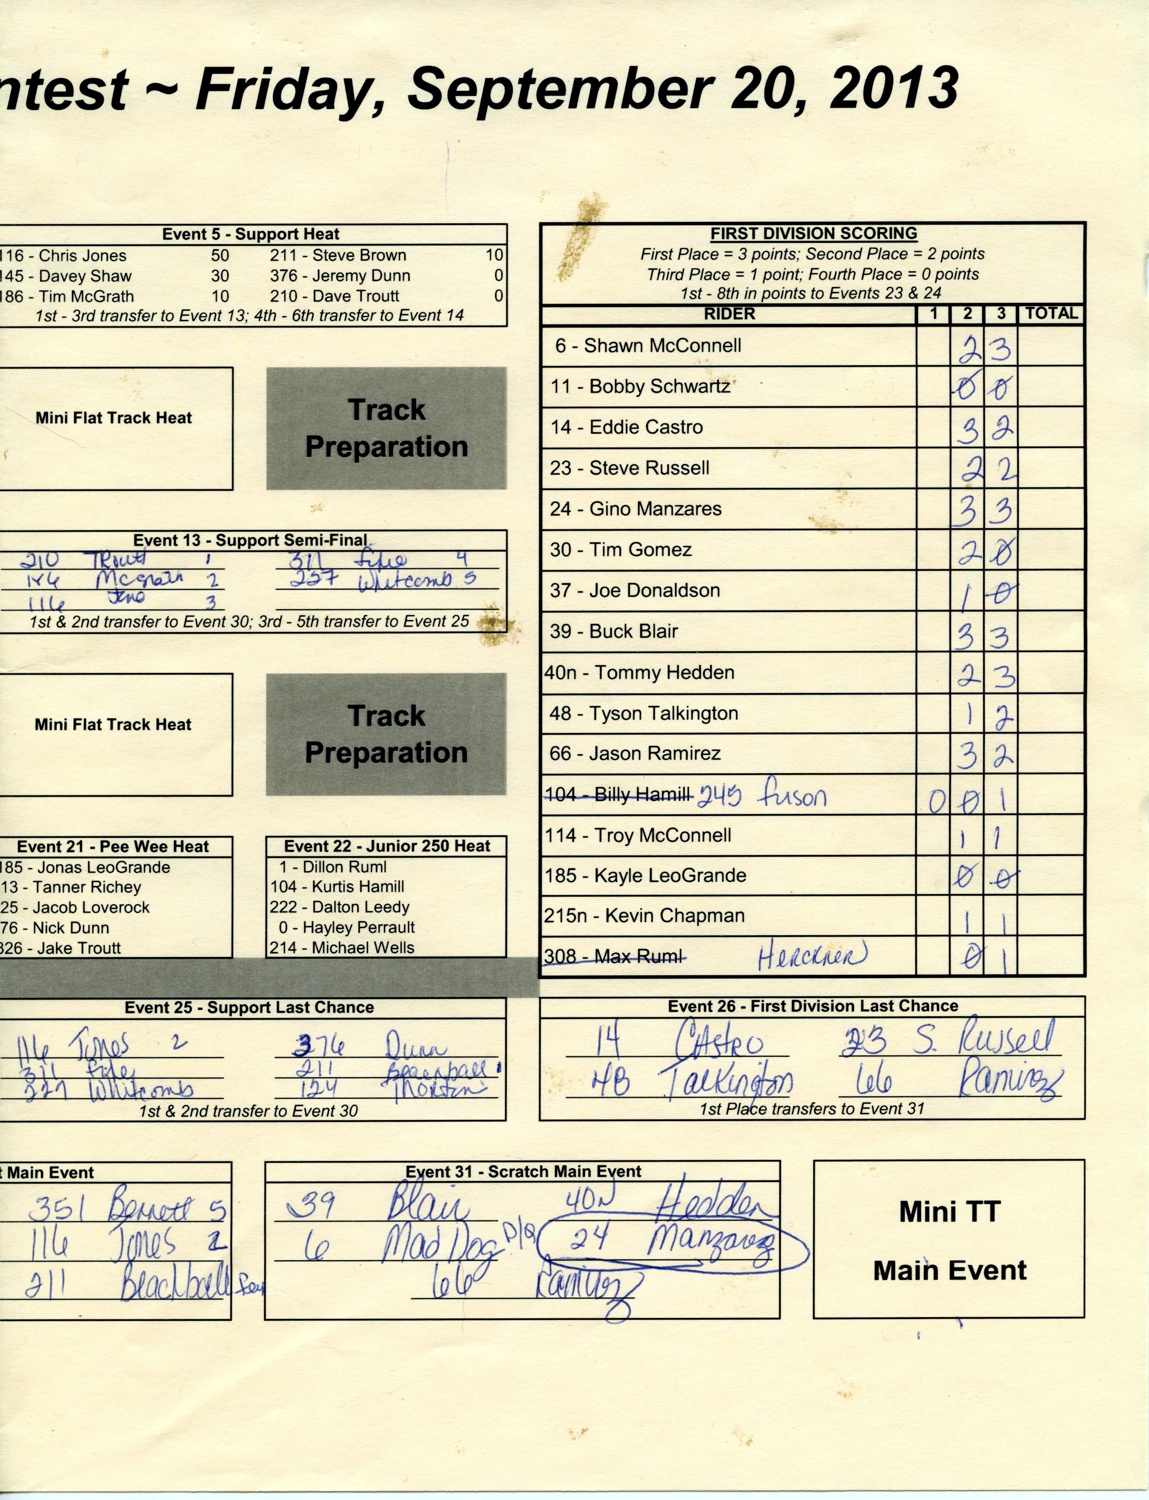 ntest ~ Friday, September 20, 2013
Event 5 - Support Heat
116 - Chris Jones 50 211 - Steve Brown 10
145 - Davey Shaw 30 376 - Jeremy Dunn 0
186 - Tim McGrath 10 210 - Dave Troutt 0
1st - 3rd transfer to Event 13; 4th - 6th transfer to Event 14
Mini Flat Track Heat
Track
Preparation
Event 13 - Support Semi-Final
210 Troutt 1 311 4
186 McGrath 2 227 Whitcomb 5
116 3
1st & 2nd transfer to Event 30; 3rd - 5th transfer to Event 25
Mini Flat Track Heat
Track
Preparation
Event 21 - Pee Wee Heat
185 - Jonas LeoGrande
13 - Tanner Richey
25 - Jacob Loverock
76 - Nick Dunn
326 - Jake Troutt
Event 22 - Junior 250 Heat
1 - Dillon Ruml
104 - Kurtis Hamill
222 - Dalton Leedy
0 - Hayley Perrault
214 - Michael Wells
FIRST DIVISION SCORING
First Place = 3 points; Second Place = 2 points
Third Place = 1 point; Fourth Place = 0 points
1st - 8th in points to Events 23 & 24
RIDER 1 2 3 TOTAL
6 - Shawn McConnell 2 3
11 - Bobby Schwartz 0 0
14 - Eddie Castro 3 2
23 - Steve Russell 2 2
24 - Gino Manzares 3 3
30 - Tim Gomez 2 0
37 - Joe Donaldson 1 0
39 - Buck Blair 3 3
40n - Tommy Hedden 2 3
48 - Tyson Talkington 1 2
66 - Jason Ramirez 3 2
104 - Billy Hamill 245 fuson 0 0 1
114 - Troy McConnell 1 1
185 - Kayle LeoGrande 0 0
215n - Kevin Chapman 1 1
308 - Max Ruml Herckner 0 1
Event 25 - Support Last Chance
116 Jones 2 376 Dunn
311 211 Beachball
227 Whitcomb 124
1st & 2nd transfer to Event 30
Event 26 - First Division Last Chance
14 Castro 23 S. Russell
48 Talkington 66 Ramirez
1st Place transfers to Event 31
t Main Event
351 Bennett 5
116 Jones 2
211 Beachball
Event 31 - Scratch Main Event
39 Blair 40N Hedden
6 Mad Dog D/Q 24 Manzarez
66 Ramirez
Mini TT
Main Event